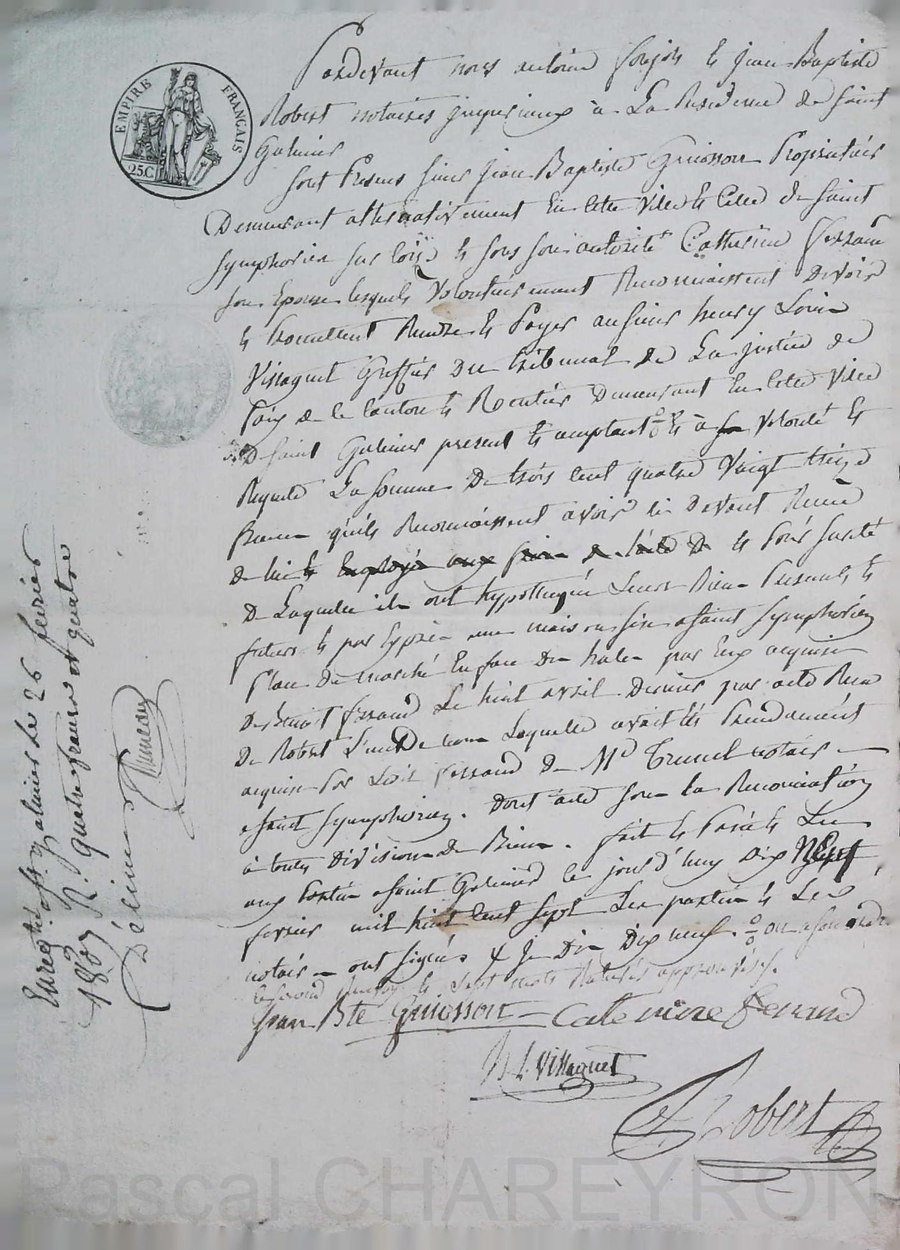 EMPIRE FRANÇAIS
25C.
Pardevant nous antoine et jean Baptiste
Robert notaires jmperiaux à La Residence de Saint
Galmier
Sont Presens Sieur jean Baptiste Guiosson Proprietaire
Demeurant alternativement En Cette ville et Celle de Saint
Symphorien Sur Loire et Sous Son autorité Catherine
Son Epouse lesquels Volontairement Reconnaissent Devoir
et Promettent Rendre et Payer au Sieur henry Louis
Vissaguet Greffier Du tribunal de La justice de
Paix de le Canton et Rentier Demeurant En Cette Ville
De Saint Galmier present et acceptant et à Volonté et
Requete La Somme De trois Cent quatre Vingt treize
francs qu'ils Reconnaissent avoir Ci Devant Recue
de lui et Employée aux et Pour Sureté
De Laquelle ils ont hypothequé Leurs Biens Presents et
futurs et par Exprès une maison Sise a Saint Symphorien
Place Du marché En face Des hales par Eux acquise
De Benoit ferrand Le huit avril Dernier par acte Recu
De Robert L'un De nous Laquelle avait été
acquise Par Ledit ferrand De Me notaire
a Saint Symphorien. Dont acte Sous La Renonciation
à toute Division De Biens. fait et Passé et Lu
aux Parties a Saint Galmier Ce jour d'huy Dix Neuf
fevrier mil huit Cent Sept Les parties et Les
notaires ont Signés & Je Dis Dix neuf. ou a son ordre
le Second Renvoy et Sept mots Raturés approuvés.
Jean Bte Guiosson Caterine ferrand
h L Vissaguet
Robert
Enregtré a St galmier Le 26 fevrier
1807 R. quatre francs et quatre
Pascal CHAREYRON